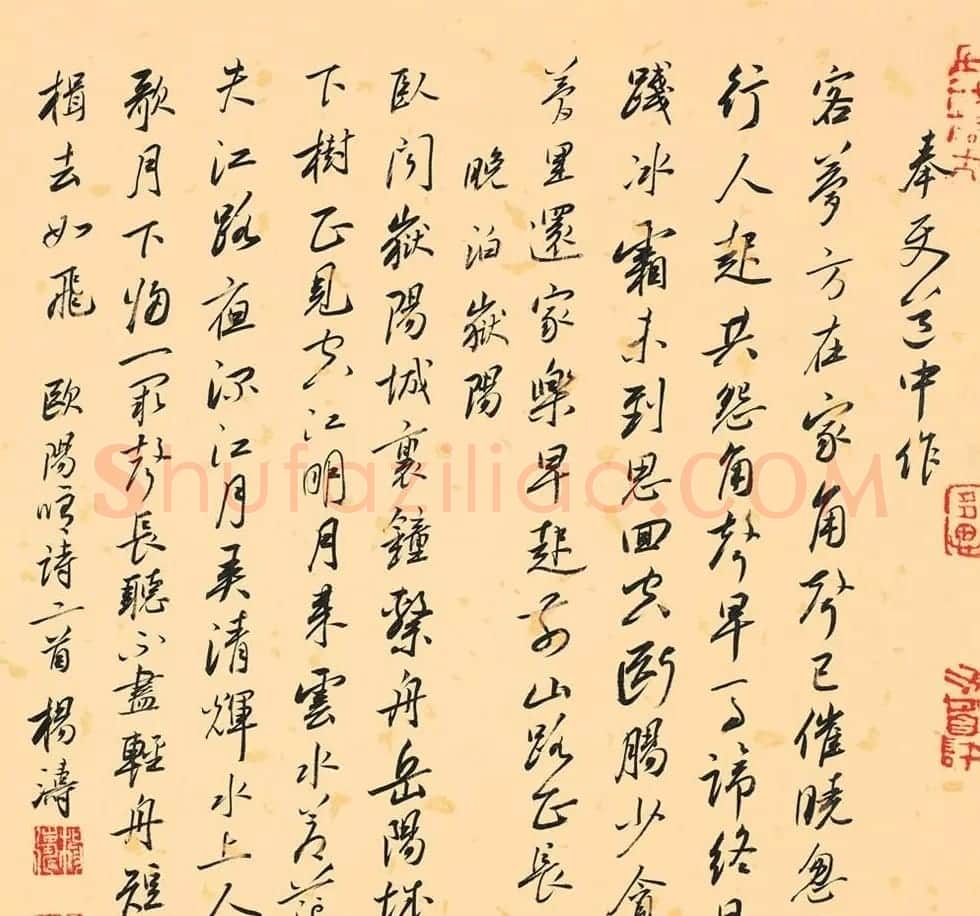 奉使道中作
客夢方在家角聲已催曉忽
行人起共怨角聲早馬蹄終日
踐冰霜未到思回空斷腸少貪
夢里還家樂早起前山路正長
晚泊嶽陽
臥聞嶽陽城裏鐘繫舟岳陽城
下樹正見空江明月來雲水蒼茫
失江路夜深江月弄清輝水上人
歌月下歸一闋聲長聽不盡輕舟短
楫去如飛 歐陽脩詩二首 楊濤
Shufaziliao.COM